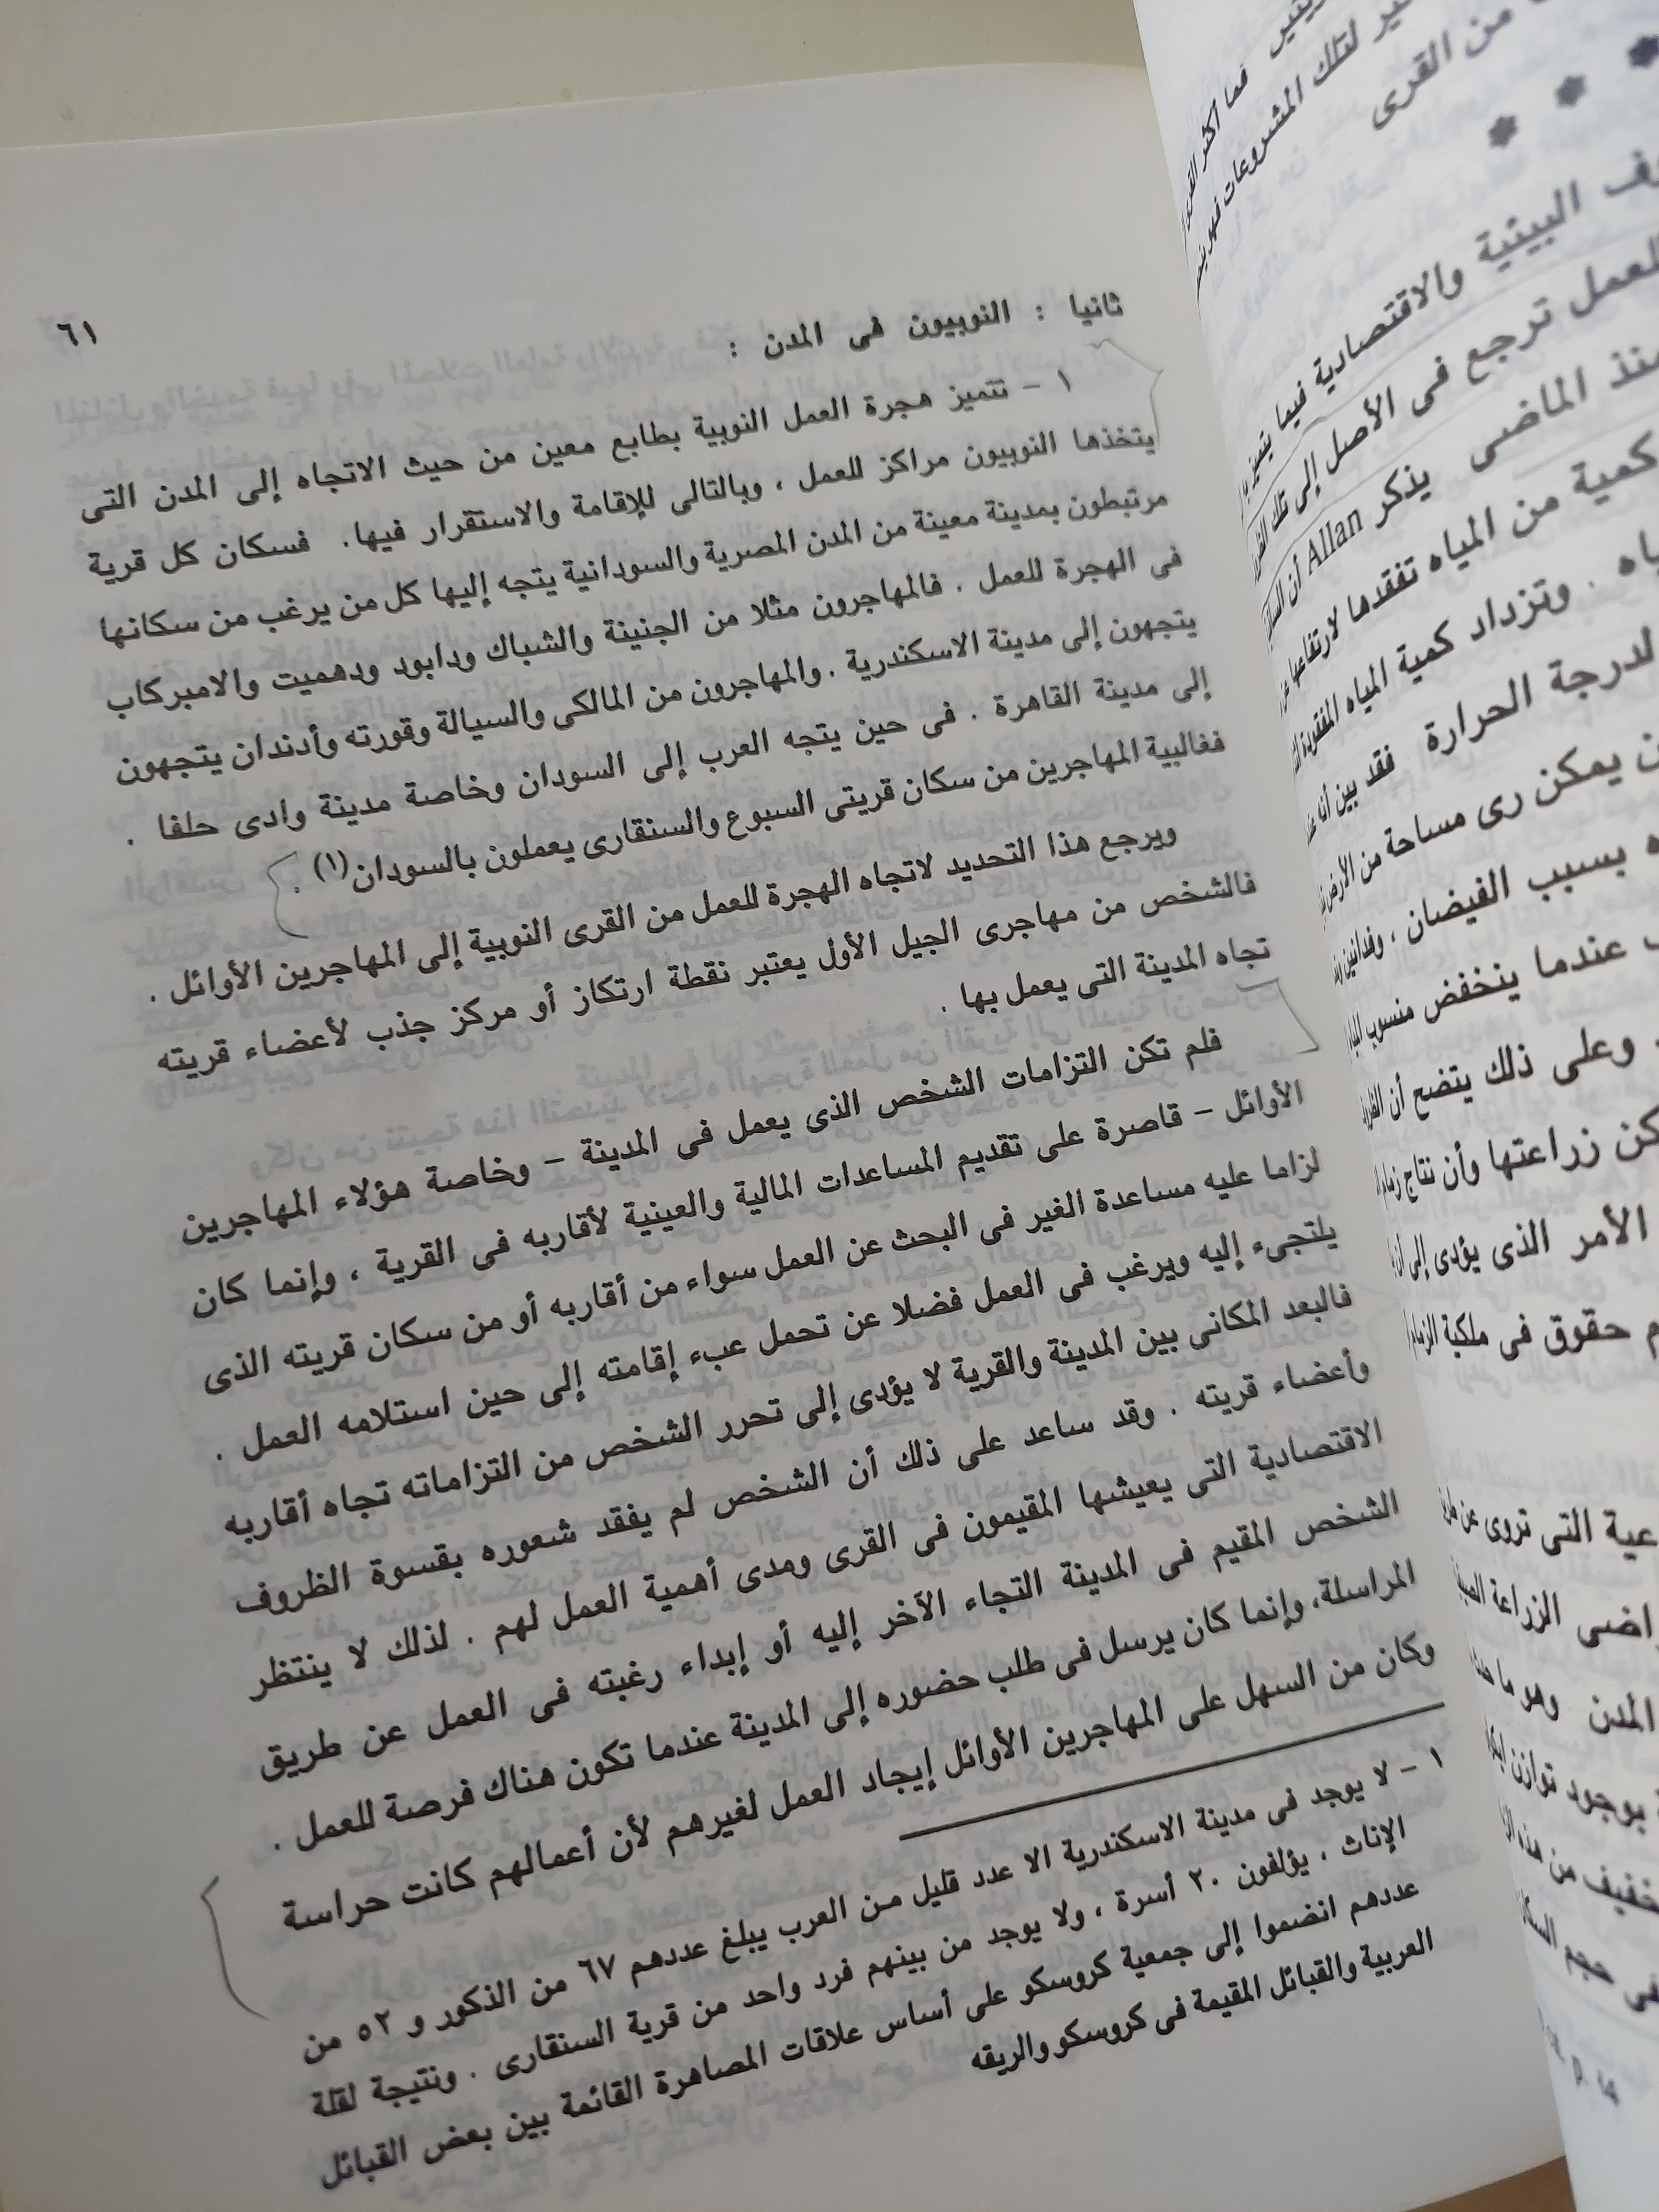 ٦١
ثانيا : النوبيون فى المدن :
١ – تتميز هجرة العمل النوبية بطابع معين من حيث الاتجاه إلى المدن التى
يتخذها النوبيون مراكز للعمل ، وبالتالى للإقامة والاستقرار فيها. فسكان كل قرية
مرتبطون بمدينة معينة من المدن المصرية والسودانية يتجه إليها كل من يرغب من سكانها
فى الهجرة للعمل . فالمهاجرون مثلا من الجنينة والشباك ودابود ودهميت والامبركاب
يتجهون إلى مدينة الاسكندرية . والمهاجرون من المالكى والسيالة وقورته وأدندان يتجهون
إلى مدينة القاهرة . فى حين يتجه العرب إلى السودان وخاصة مدينة وادى حلفا .
فغالبية المهاجرين من سكان قريتى السبوع والسنقارى يعملون بالسودان(١) .
ويرجع هذا التحديد لاتجاه الهجرة للعمل من القرى النوبية إلى المهاجرين الأوائل .
فالشخص من مهاجرى الجيل الأول يعتبر نقطة ارتكاز أو مركز جذب لأعضاء قريته
تجاه المدينة التى يعمل بها .
فلم تكن التزامات الشخص الذى يعمل فى المدينة – وخاصة هؤلاء المهاجرين
الأوائل – قاصرة على تقديم المساعدات المالية والعينية لأقاربه فى القرية ، وإنما كان
لزاما عليه مساعدة الغير فى البحث عن العمل سواء من أقاربه أو من سكان قريته الذى
يلتجىء إليه ويرغب فى العمل فضلا عن تحمل عبء إقامته إلى حين استلامه العمل .
فالبعد المكانى بين المدينة والقرية لا يؤدى إلى تحرر الشخص من التزاماته تجاه أقاربه
وأعضاء قريته . وقد ساعد على ذلك أن الشخص لم يفقد شعوره بقسوة الظروف
الاقتصادية التى يعيشها المقيمون فى القرى ومدى أهمية العمل لهم . لذلك لا ينتظر
الشخص المقيم فى المدينة التجاء الآخر إليه أو إبداء رغبته فى العمل عن طريق
المراسلة، وإنما كان يرسل فى طلب حضوره إلى المدينة عندما تكون هناك فرصة للعمل .
وكان من السهل على المهاجرين الأوائل إيجاد العمل لغيرهم لأن أعمالهم كانت حراسة
١ – لا يوجد فى مدينة الاسكندرية الا عدد قليل من العرب يبلغ عددهم ٦٧ من الذكور و ٥٢ من
الإناث ، يؤلفون ٢٠ أسرة ، ولا يوجد من بينهم فرد واحد من قرية السنقارى . ونتيجة لقلة
عددهم انضموا إلى جمعية كروسكو على أساس علاقات المصاهرة القائمة بين بعض القبائل
العربية والقبائل المقيمة فى كروسكو والريقه
فما أكثر
لتلك المشروعات
من القرى
* * *
البيئية والاقتصادية فيما
للعمل ترجع فى الأصل إلى تلك
منذ الماضى يذكر Allan أن
كمية من المياه تفقدها لارتفاعها
. وتزداد كمية المياه المفقودة
لدرجة الحرارة فقد بين أنه
يمكن رى مساحة من الأرض
بسبب الفيضان ، وفدانين
عندما ينخفض منسوب
. وعلى ذلك يتضح أن
زراعتها وأن نتاج
الأمر الذى يؤدى إلى
حقوق فى ملكية
التى تروى عن
الزراعة
المدن وهو ما
بوجود توازن
من هذه
حجم